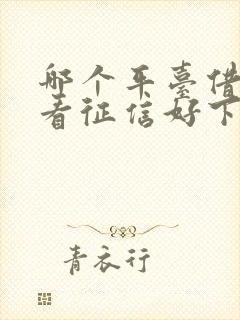 哪个平臺借
看征信好下
青衣行